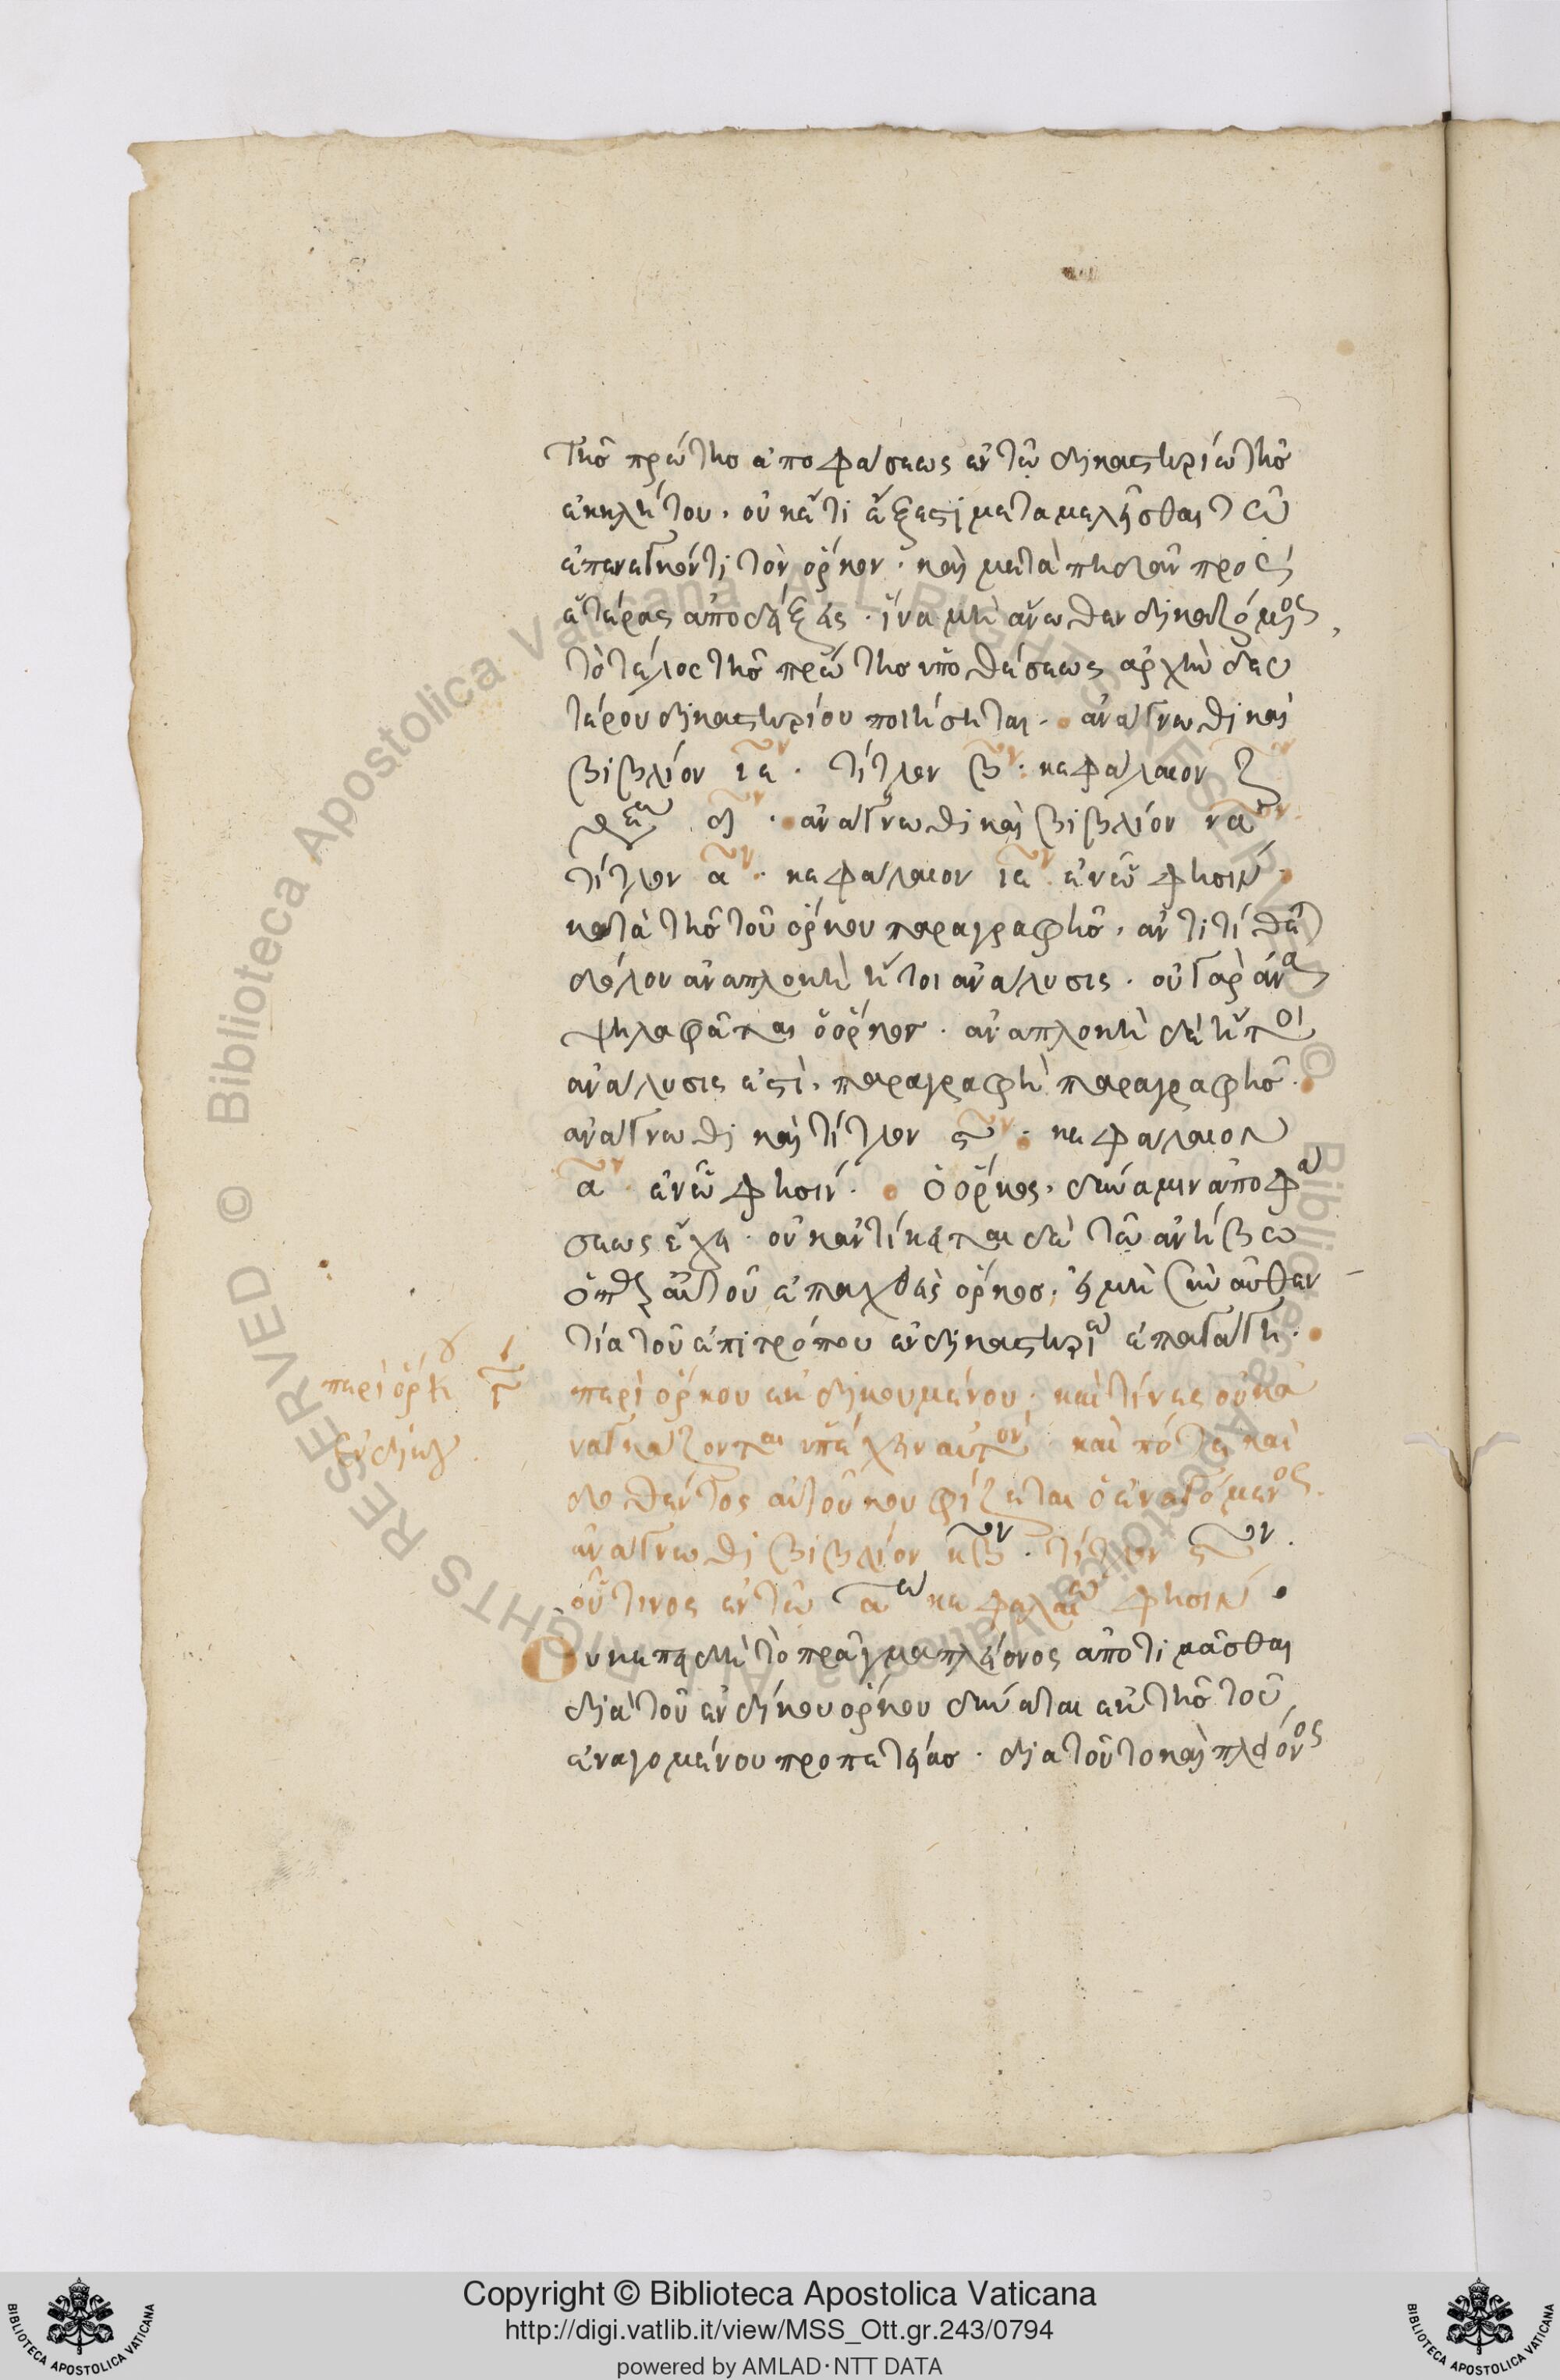 τῆς πρώτης ἀποφάσεως ἐν τῶ δικαστηρίω τῆς
ἐκκλήτου. οὐκέτι ἔξεστι μεταμελεῖσθαι τῶ
ἐπενεγκόντι τὸν ὅρκον. καὶ μεταπηδᾶν πρὸς
ἑτέρας ἀποδείξεις. ἵνα μὴ ἄνωθεν δικαζόμενος,
τὸ τέλος τῆς πρώτης ὑποθέσεως ἀρχὴν δευ
τέρου δικαστηρίου ποιήσηται. ἀνάγνωθι καὶ
βιβλίον ιε. τίτλον β. κεφάλαιον ζ
δ. ἀνάγνωθι καὶ βιβλίον να
τίτλον α. κεφάλαιον ιε ἐν ᾧ φησίν
κατὰ τῆς τοῦ ὅρκου παραγραφῆς, ἀντιτίθε
δόλου ἀναπλοκὴ ἤτοι ἀνάλυσις. οὐ γὰρ ἀνα
ψηλαφᾶται ὁ ὅρκος. ἀναπλοκὴ δὲ ἤτοι
ἀνάλυσις ἐστὶ, παραγραφὴ παραγραφῆς.
ἀνάγνωθι καὶ τίτλον ς. κεφάλαιον
α ἐν ᾧ φησίν. ὁ ὅρκος, δύναμιν ἀποφά
σεως ἔχει. οὐκ ἀντίκειται δὲ τῶ ἀνήβω
ὁ παρ αὐτοῦ ἐπαχθεὶς ὅρκος, εἰ μὴ σὺν αὐθεν
τία τοῦ ἐπιτρόπου ἐν δικαστηρίω ἐπαγάγη.
περὶ ὅρκου ἐνδικουμένου. καὶ τίνες οὐκ ἀ
ναγκάζονται ὑπέχειν αὐτόν. καὶ πότε καὶ
δοθέντος αὐτοῦ κουφίζεται ὁ ἐναγόμενος.
ἀνάγνωθι βιβλίον κβ. τίτλον ς.
οὗτινος ἐν τῶ α κεφαλαίω φησίν.
Οὐκ ἐπειδὴ τὸ πρᾶγμα πλείονος ἀποτιμᾶσθαι
διὰ τοῦ ἐνδίκου ὅρκου δύναται ἐκ τῆς τοῦ
ἐναγομένου προπετείας. διὰ τοῦτο καὶ πλείονος
περὶ ὅρκου ι
ἐνδίκου
Copyright © Biblioteca Apostolica Vaticana
http://digi.vatlib.it/view/MSS_Ott.gr.243/0794
powered by AMLAD·NTT DATA
BIBLIOTECA APOSTOLICA VATICANA
BIBLIOTECA APOSTOLICA VATICANA